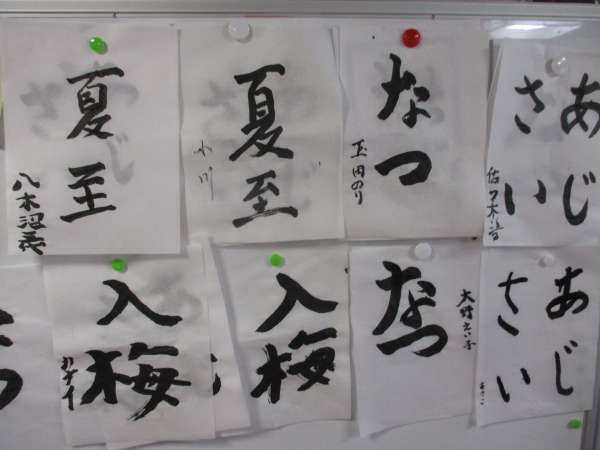 夏至
八木沼
夏至
小川
なつ
玉田のり
あじ
さい
佐々木
入梅
入梅
なつ
大野
あじ
さい